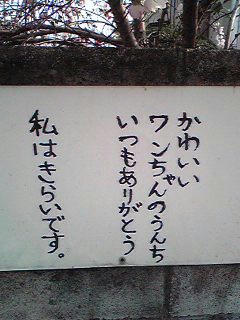 かわいい
ワンちゃんのうんち
いつもありがとう
私はきらいです。